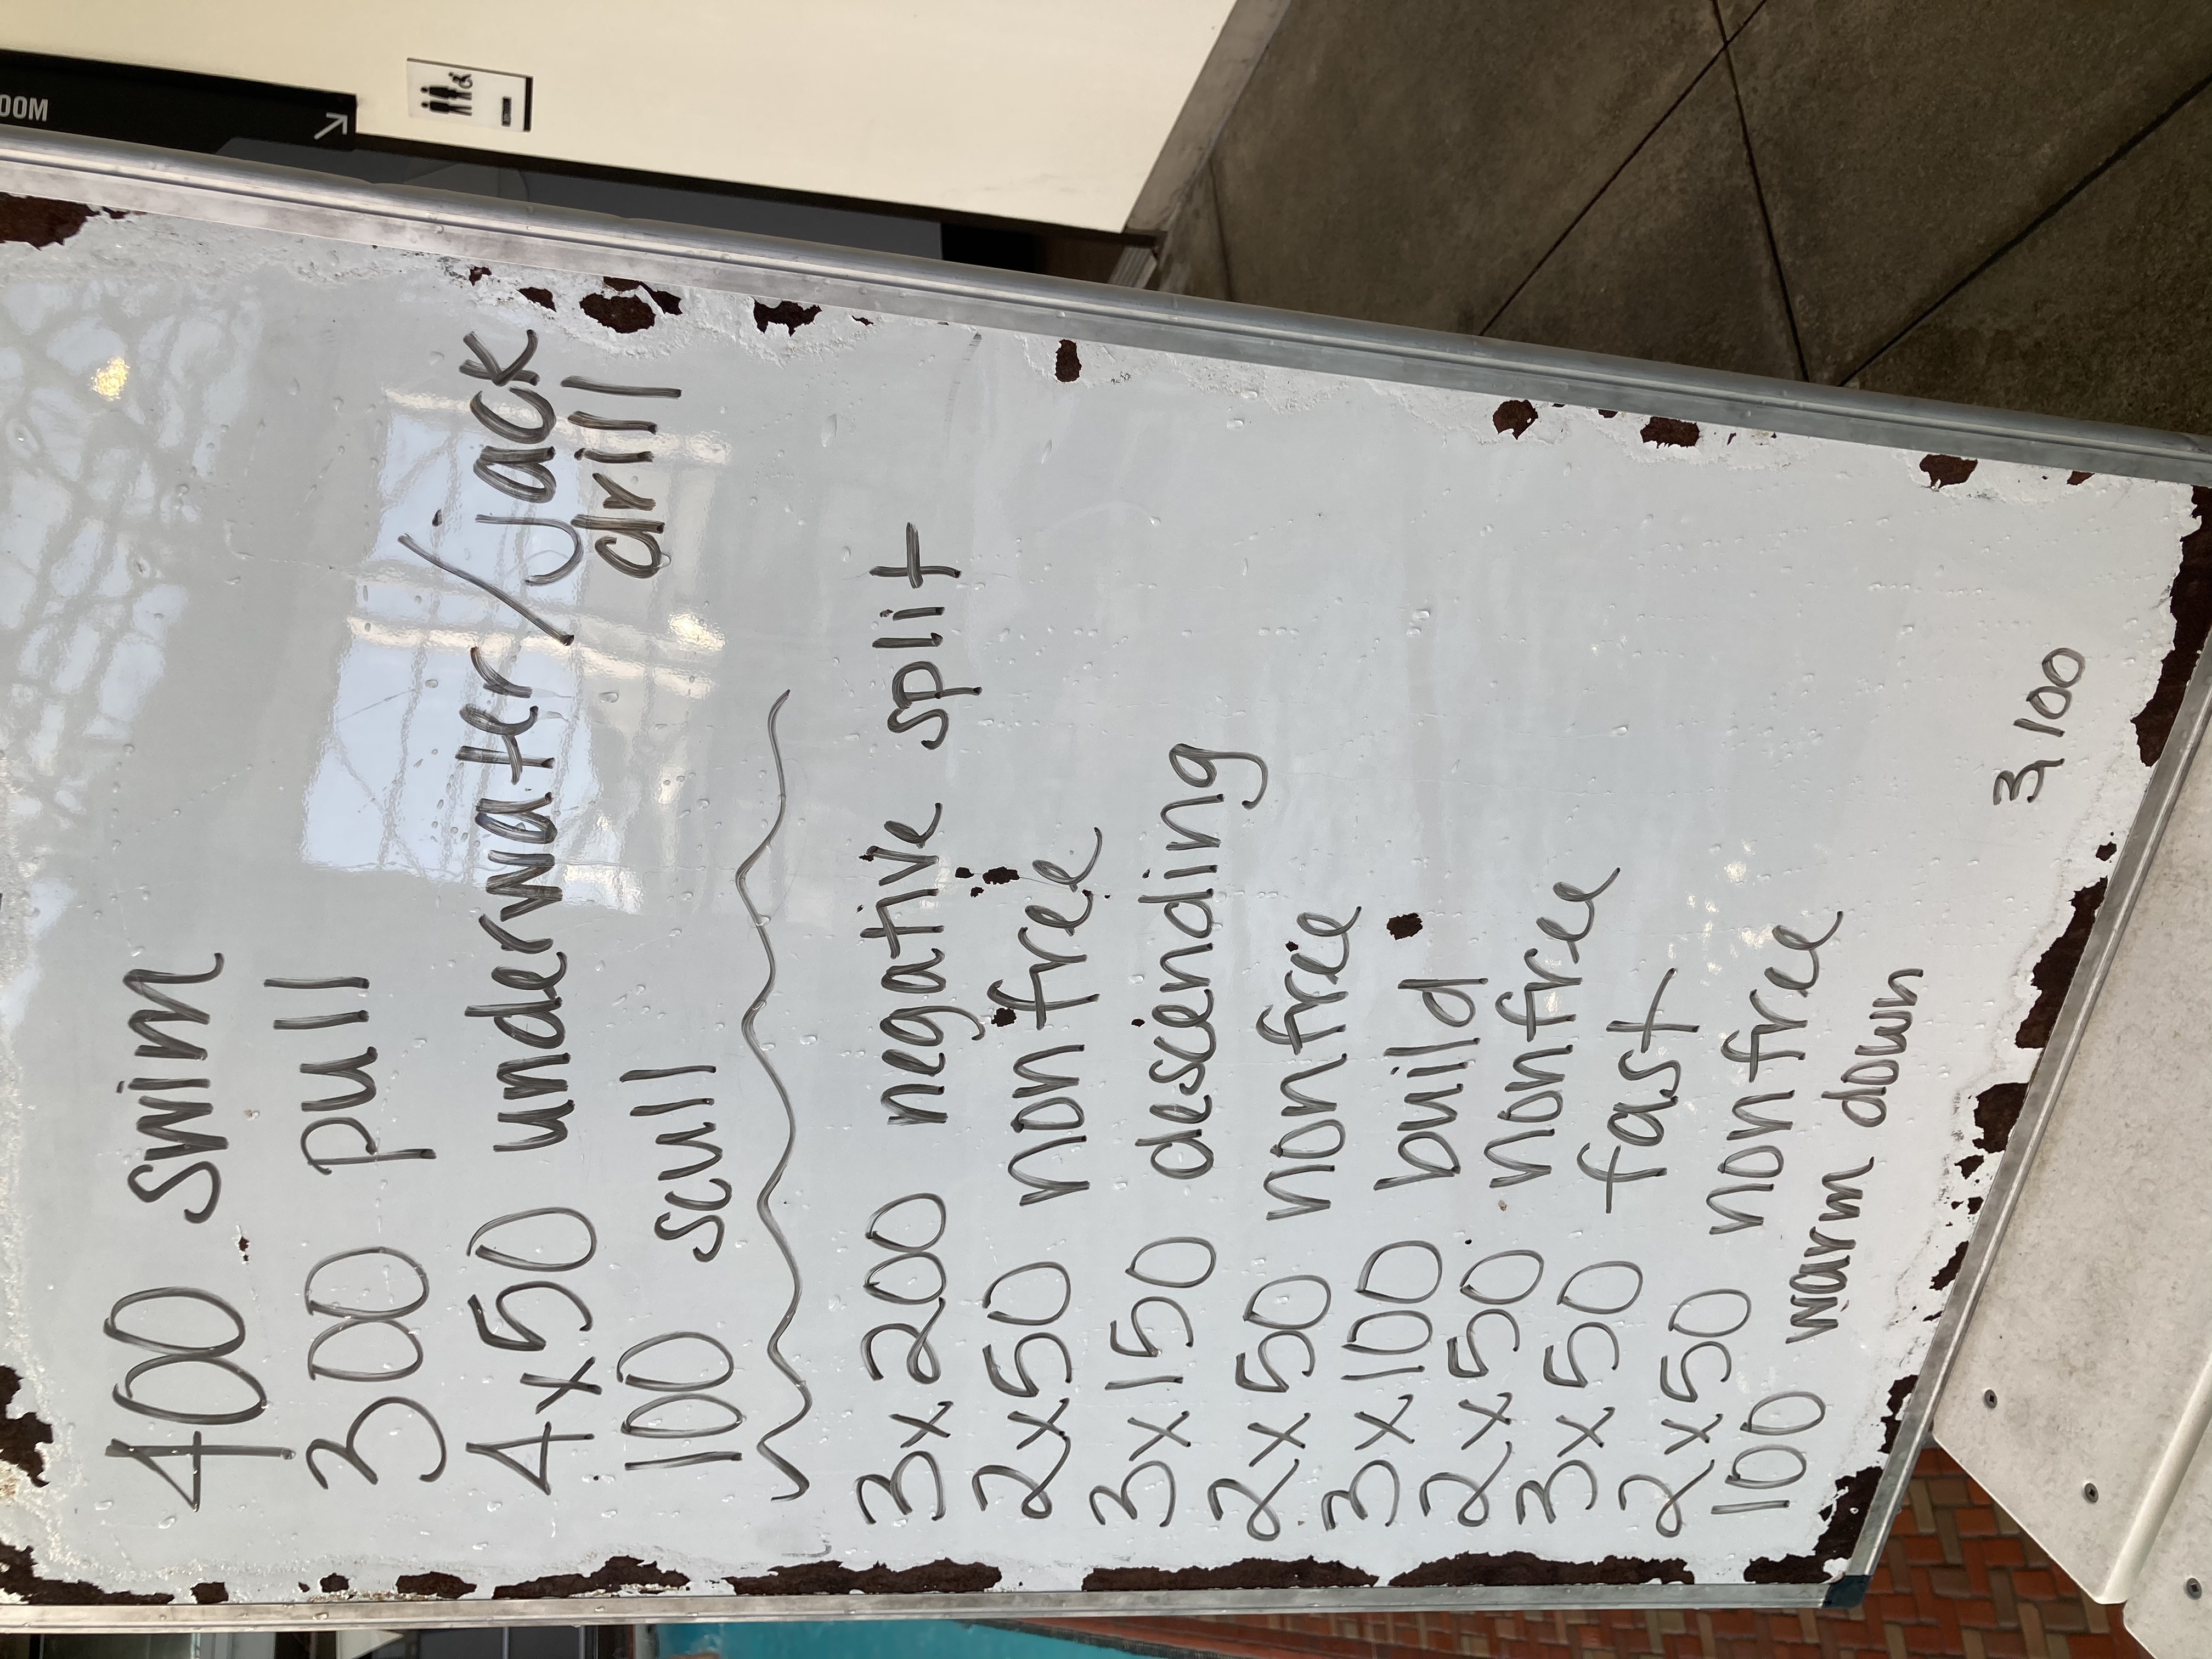 400 swim
300 pull
4x50 underwater/jack
drill
100 scull
3x200 negative split
2x50 nonfree
3x150 descending
2x50 nonfree
3x100 build
2x50 nonfree
3x50 fast
2x50 nonfree
100 warm down
3,100
OOM